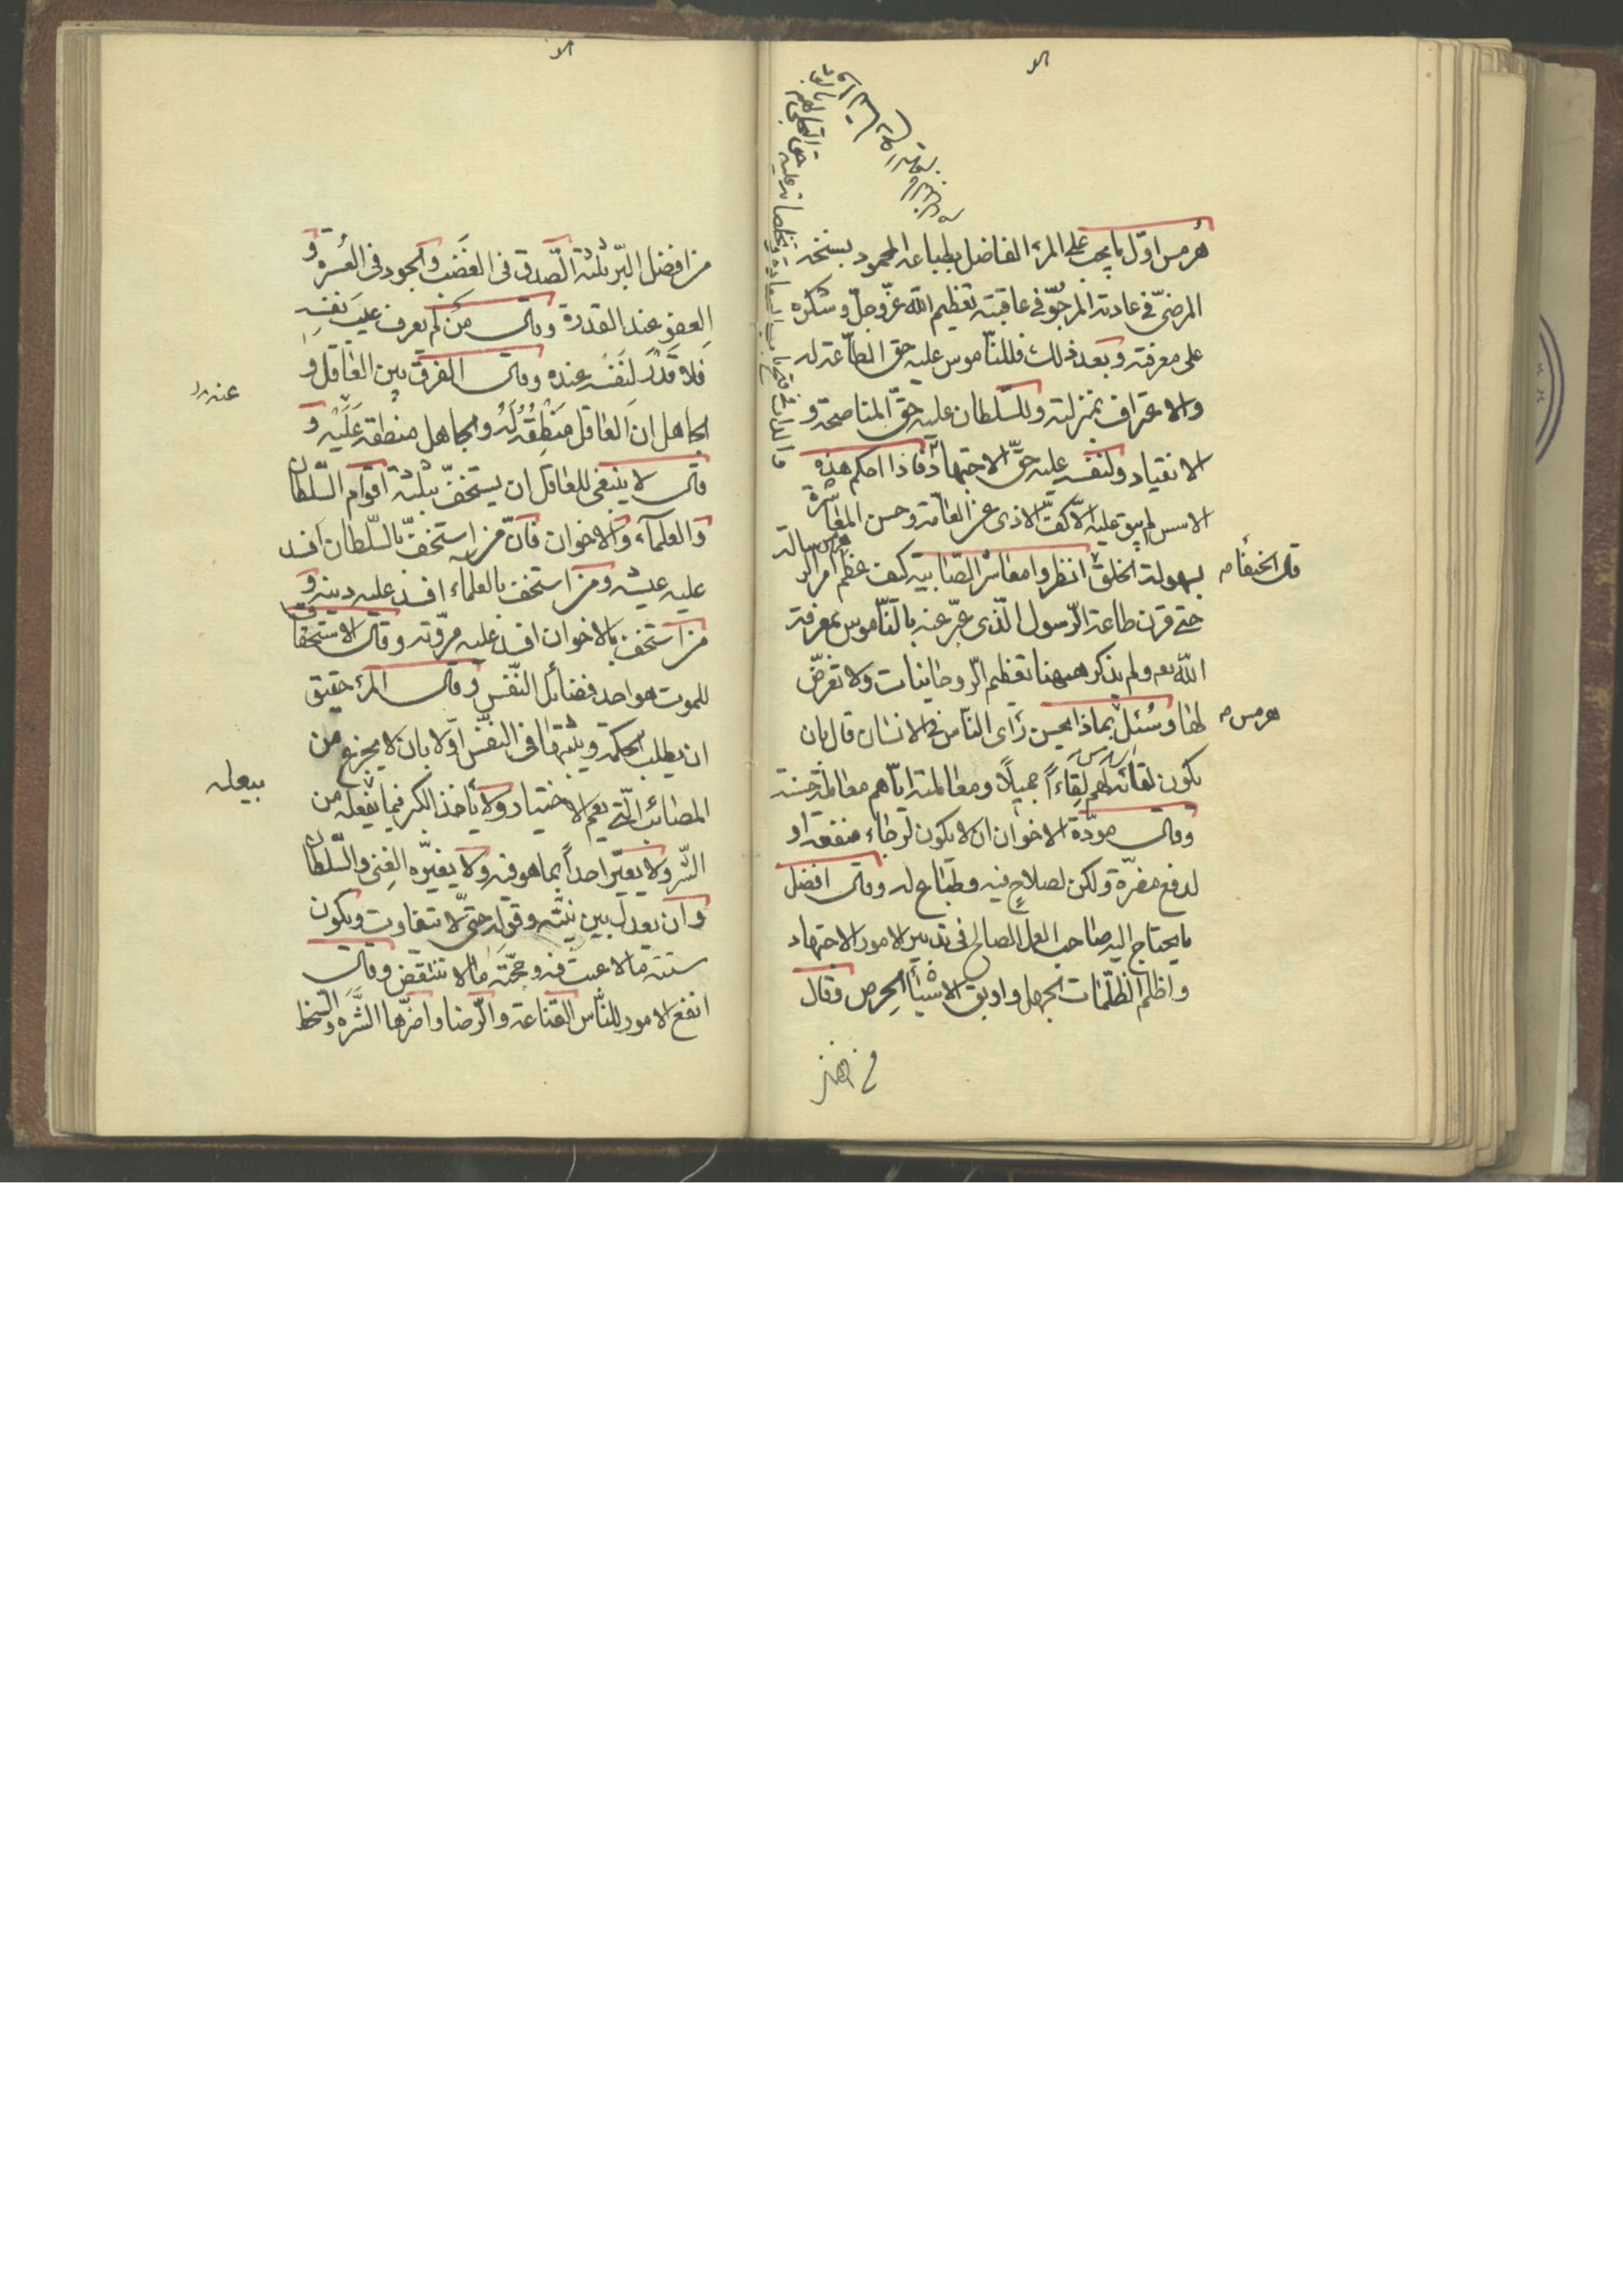 هرمس اوّل ما يجب على المرء الفاضل بطباعه المحمود بسنخه
المرضىّ فى عادته المرجوّ فى عاقبته تعظيم الله عزّ وجلّ وشكره
على معرفته وبعد ذلك فللنّاموس عليه حق الطّاعة له
والاعتراف بمنزلته وللسّلطان عليه حقّ المناصحة و
الانقياد ولنفسه عليه حقّ الاجتهاد فاذا احكم هذه
الاسس لم يبق عليه الّا كفّ الاذى عن العامّة وحسن المعاشرة
بسهولة الخلق انظروا معاشر الصّابية كيف عظّم امر الرسالة
حتى قرن طاعة الرّسول الّذى عبّر عنه بالنّاموس بمعرفة
الله تعه ولم يذكر هيهنا تعظيم الرّوحانيات ولا تعرّض
لها وسُئل بماذا يحسن رأى النّاس فى الانسان قال بان
يكون لقائه لهم لقاءاً جميلاً ومعاملته ايّاهم معاملة حسنة
وقال مودّة الاخوان ان لا يكون لرجاء منفعة او
لدفع مضرّة ولكن لصلاحٍ فيه وطباع له وقال افضل
ما يحتاج اليه صاحب العمل الصالح فى تدبير الامور الاجتهاد
واظلم الظلمات الجهل واوبق الاشياء الحرص وقال
قال الحنفاء
هرمس
من افضل البرّ ثلثة الصّدق فى الغضب والجود فى العُسرة و
العفو عند القدرة وقال من لم يعرف عيب نفسه
فلا قَدْرَ لنفسه عنده وقال الفرق بين العاقل و
الجاهل ان العاقل منطقه له والجاهل منطقه عليه و
قال لا ينبغى للعاقل ان يستخفّ بثلثة اقوام السّلطان
والعلماء والاخوان فانّ من استخفّ بالسّلطان افسد
عليه عيشه ومن استخف بالعلماء افسد عليه دينه و
من استخف بالاخوان افسد عليه مروّته وقال الاستخفاف
للموت هو احد فضائل النّفس وقال المرء حقيق
ان يطلب الحكمة ويثبتها فى النفس اوّلا بان لا يجزع من
المصائب الّتى يعم الاخيار ولا يأخذ الكبر فيما يفعله من
الشّر ولا يعيّر احداً بما هو فيه ولا يغيّره الغنى والسّلطان
وان يعدل بين نيّته وقوله حتى لا يتفاوت ويكون
سنته ما لا عيب فيه وحجّته ما لا تنتقض وقال
انفع الامور للنّاس القناعة والرّضا واضرّها الشّره والسّخط